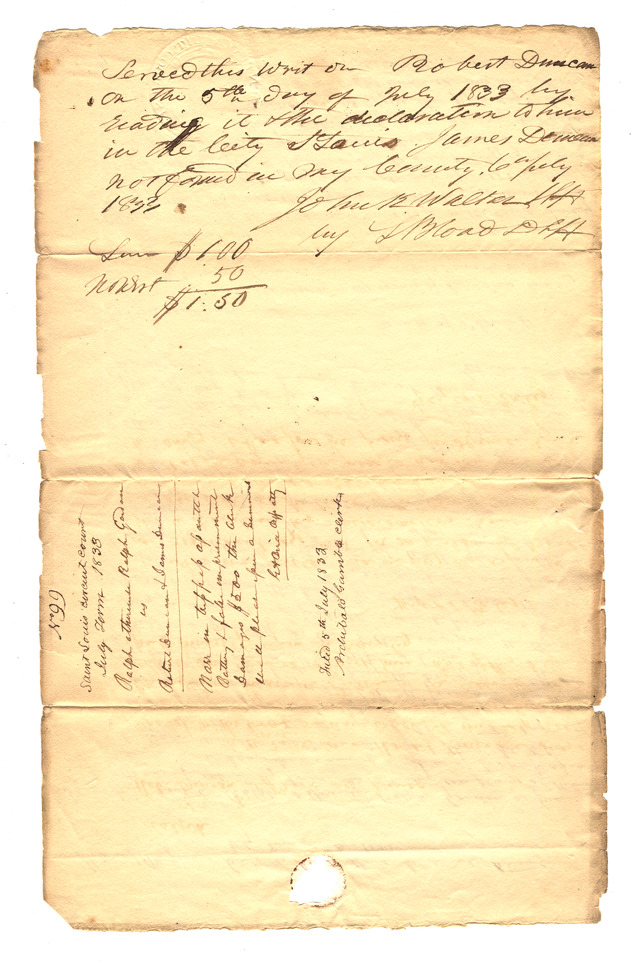 Served this Writ on Robert Duncan
on the 5th day of July 1833 by
reading it & the declaration to him
in the City St Louis. James Duncan
not found in my County. 6th July
1833
John K Walker Shff
by L Blood DShff
Serv $1.00
Nonest 50
$1.50
No 99
Saint Louis circuit court
July Term 1833
Ralph otherwise Ralph Gordon
vs
Robert Duncan & James Duncan
Narr in trespass assault
Battery & false imprisonment
Damages $500 The clerk
will please issue a summons
atty
Filed 5th July 1833
Archibald Gamble clerk